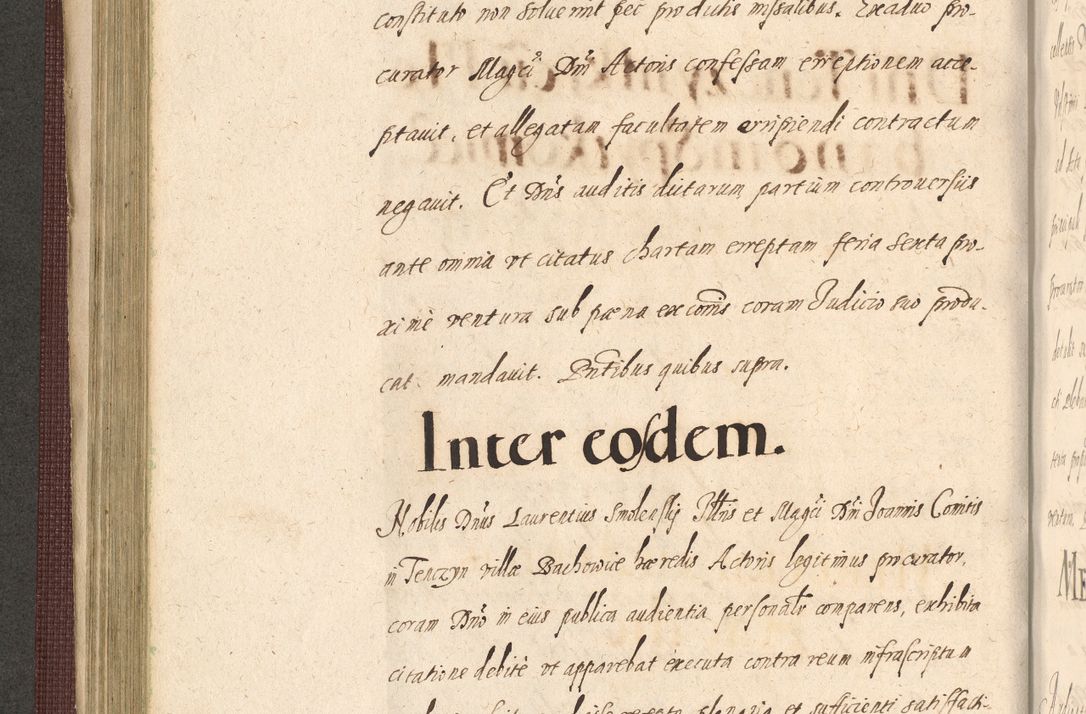 constituto non soluerint pec pro dictis missalibus. Ex aduo pro-
curator Magci Dni Actoris confessam erreptionem acce-
ptauit, et allegatam facultatem erripiendi contractum
negauit. Et Dns auditis dictarum partium controuersiis
ante omnia vt citatus chartam erreptam feria sexta pro-
ximè ventura sub pæna ex cōmis coram Judicio suo produ-
cat mandauit. Pntibus quibus supra.
Inter eosdem.
Nobilis Dnus Laurentius Smolenskÿ Illris et Magci Dni Joannis Comitis
in Tenczyn villæ Bachowice hæredis Actoris legitimus procurator,
coram Dno in eius publica audientia personalr comparens, exhibita
citatione debitè vt apparebat executa contra reum infrascriptum
et sufficienti satisfacti-